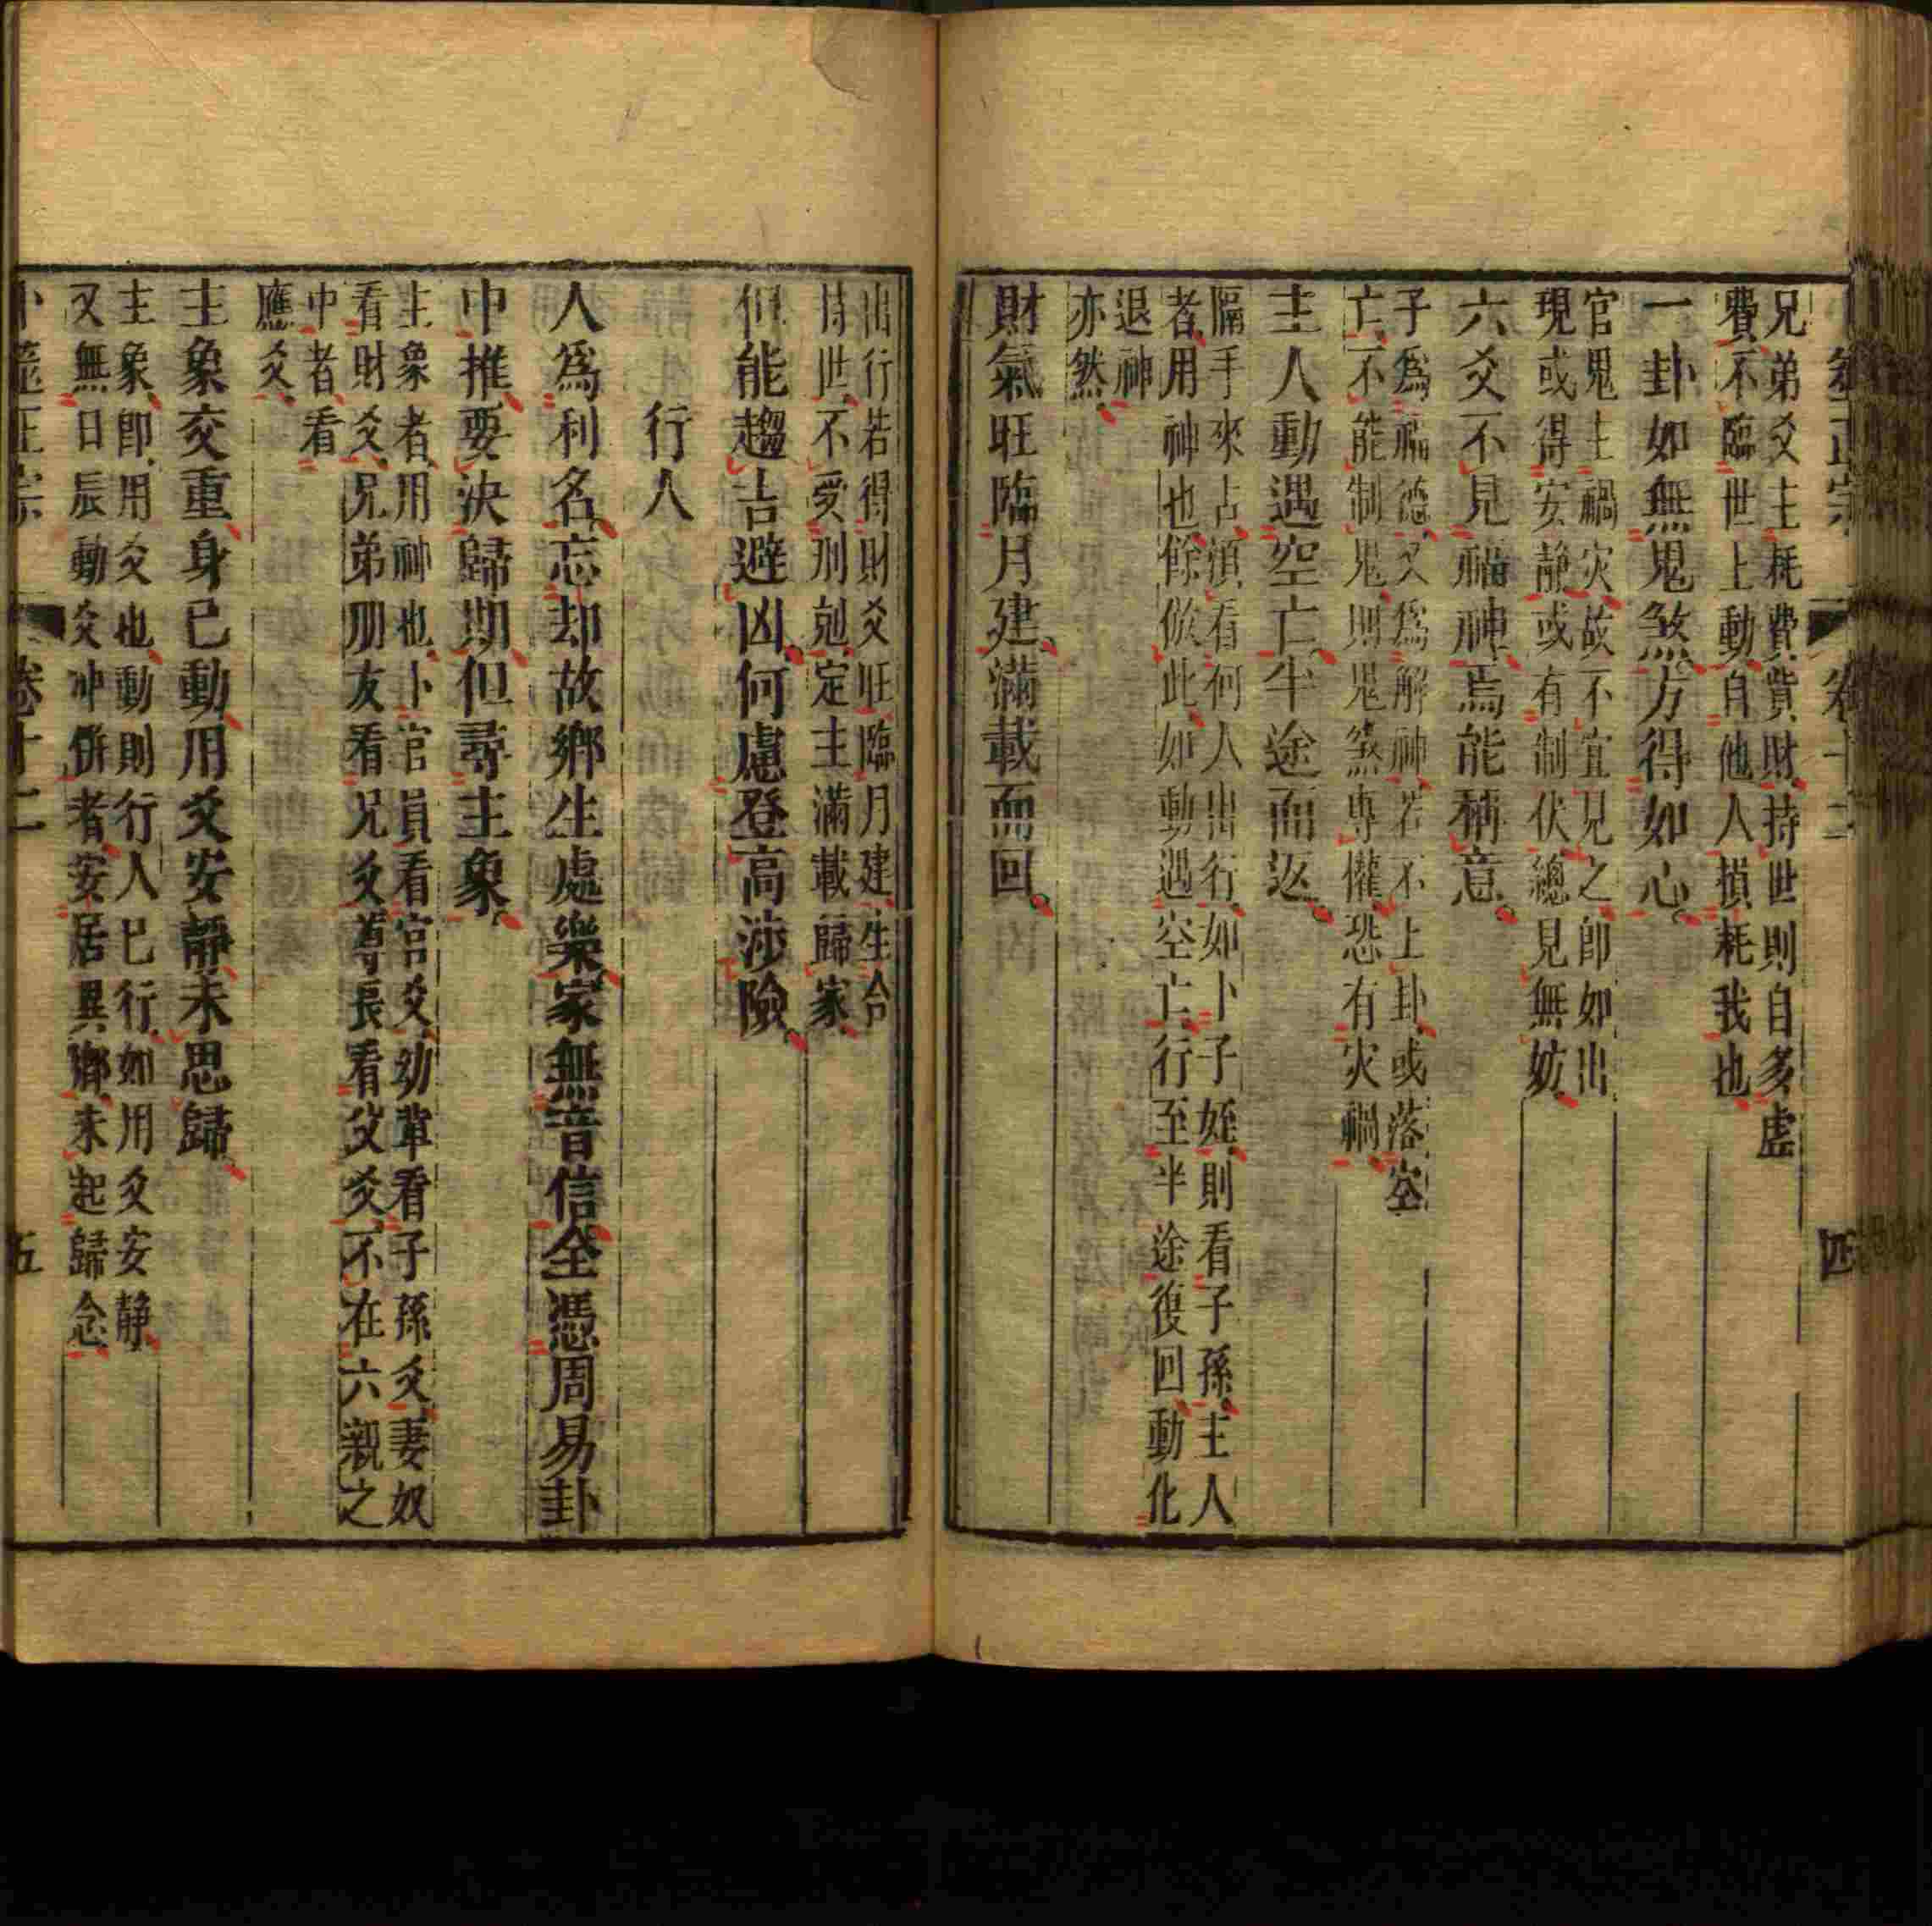 兄弟爻主耗費貲財持世則自多虗
費不臨世上動自他人損耗我也
一卦如無鬼煞方得如心
官鬼主禍灾故不宜見之卽如出
現或得安靜或有制伏總見無妨
六爻不見福神焉能稱意
子爲福德又爲解神若不上卦或落空
亡不能制鬼則鬼煞專權恐有灾禍
主人動遇空亡半途而返
隔手來占須看何人出行如卜子姪則看子孫主人
者用神也餘倣此如動遇空亡行至半途復回動化
退神
亦然
財氣旺臨月建滿載而回
卷十二
四
出行若得財爻旺臨月建生合
持世不受刑剋定主滿載歸家
但能趨吉避凶何慮登高涉險
行人
人爲利名忘却故鄉生處樂家無音信全憑周易卦
中推要決歸期但尋主象
主象者用神也卜官員看官爻幼輩看子孫爻妻奴
看財爻兄弟朋友看兄爻尊長看父爻不在六親之
中者看
應爻
主象交重身已動用爻安靜未思歸
主象卽用爻也動則行人已行如用爻安靜
又無日辰動爻冲併者安居異鄉未起歸念
卜筮正宗
卷十二
五